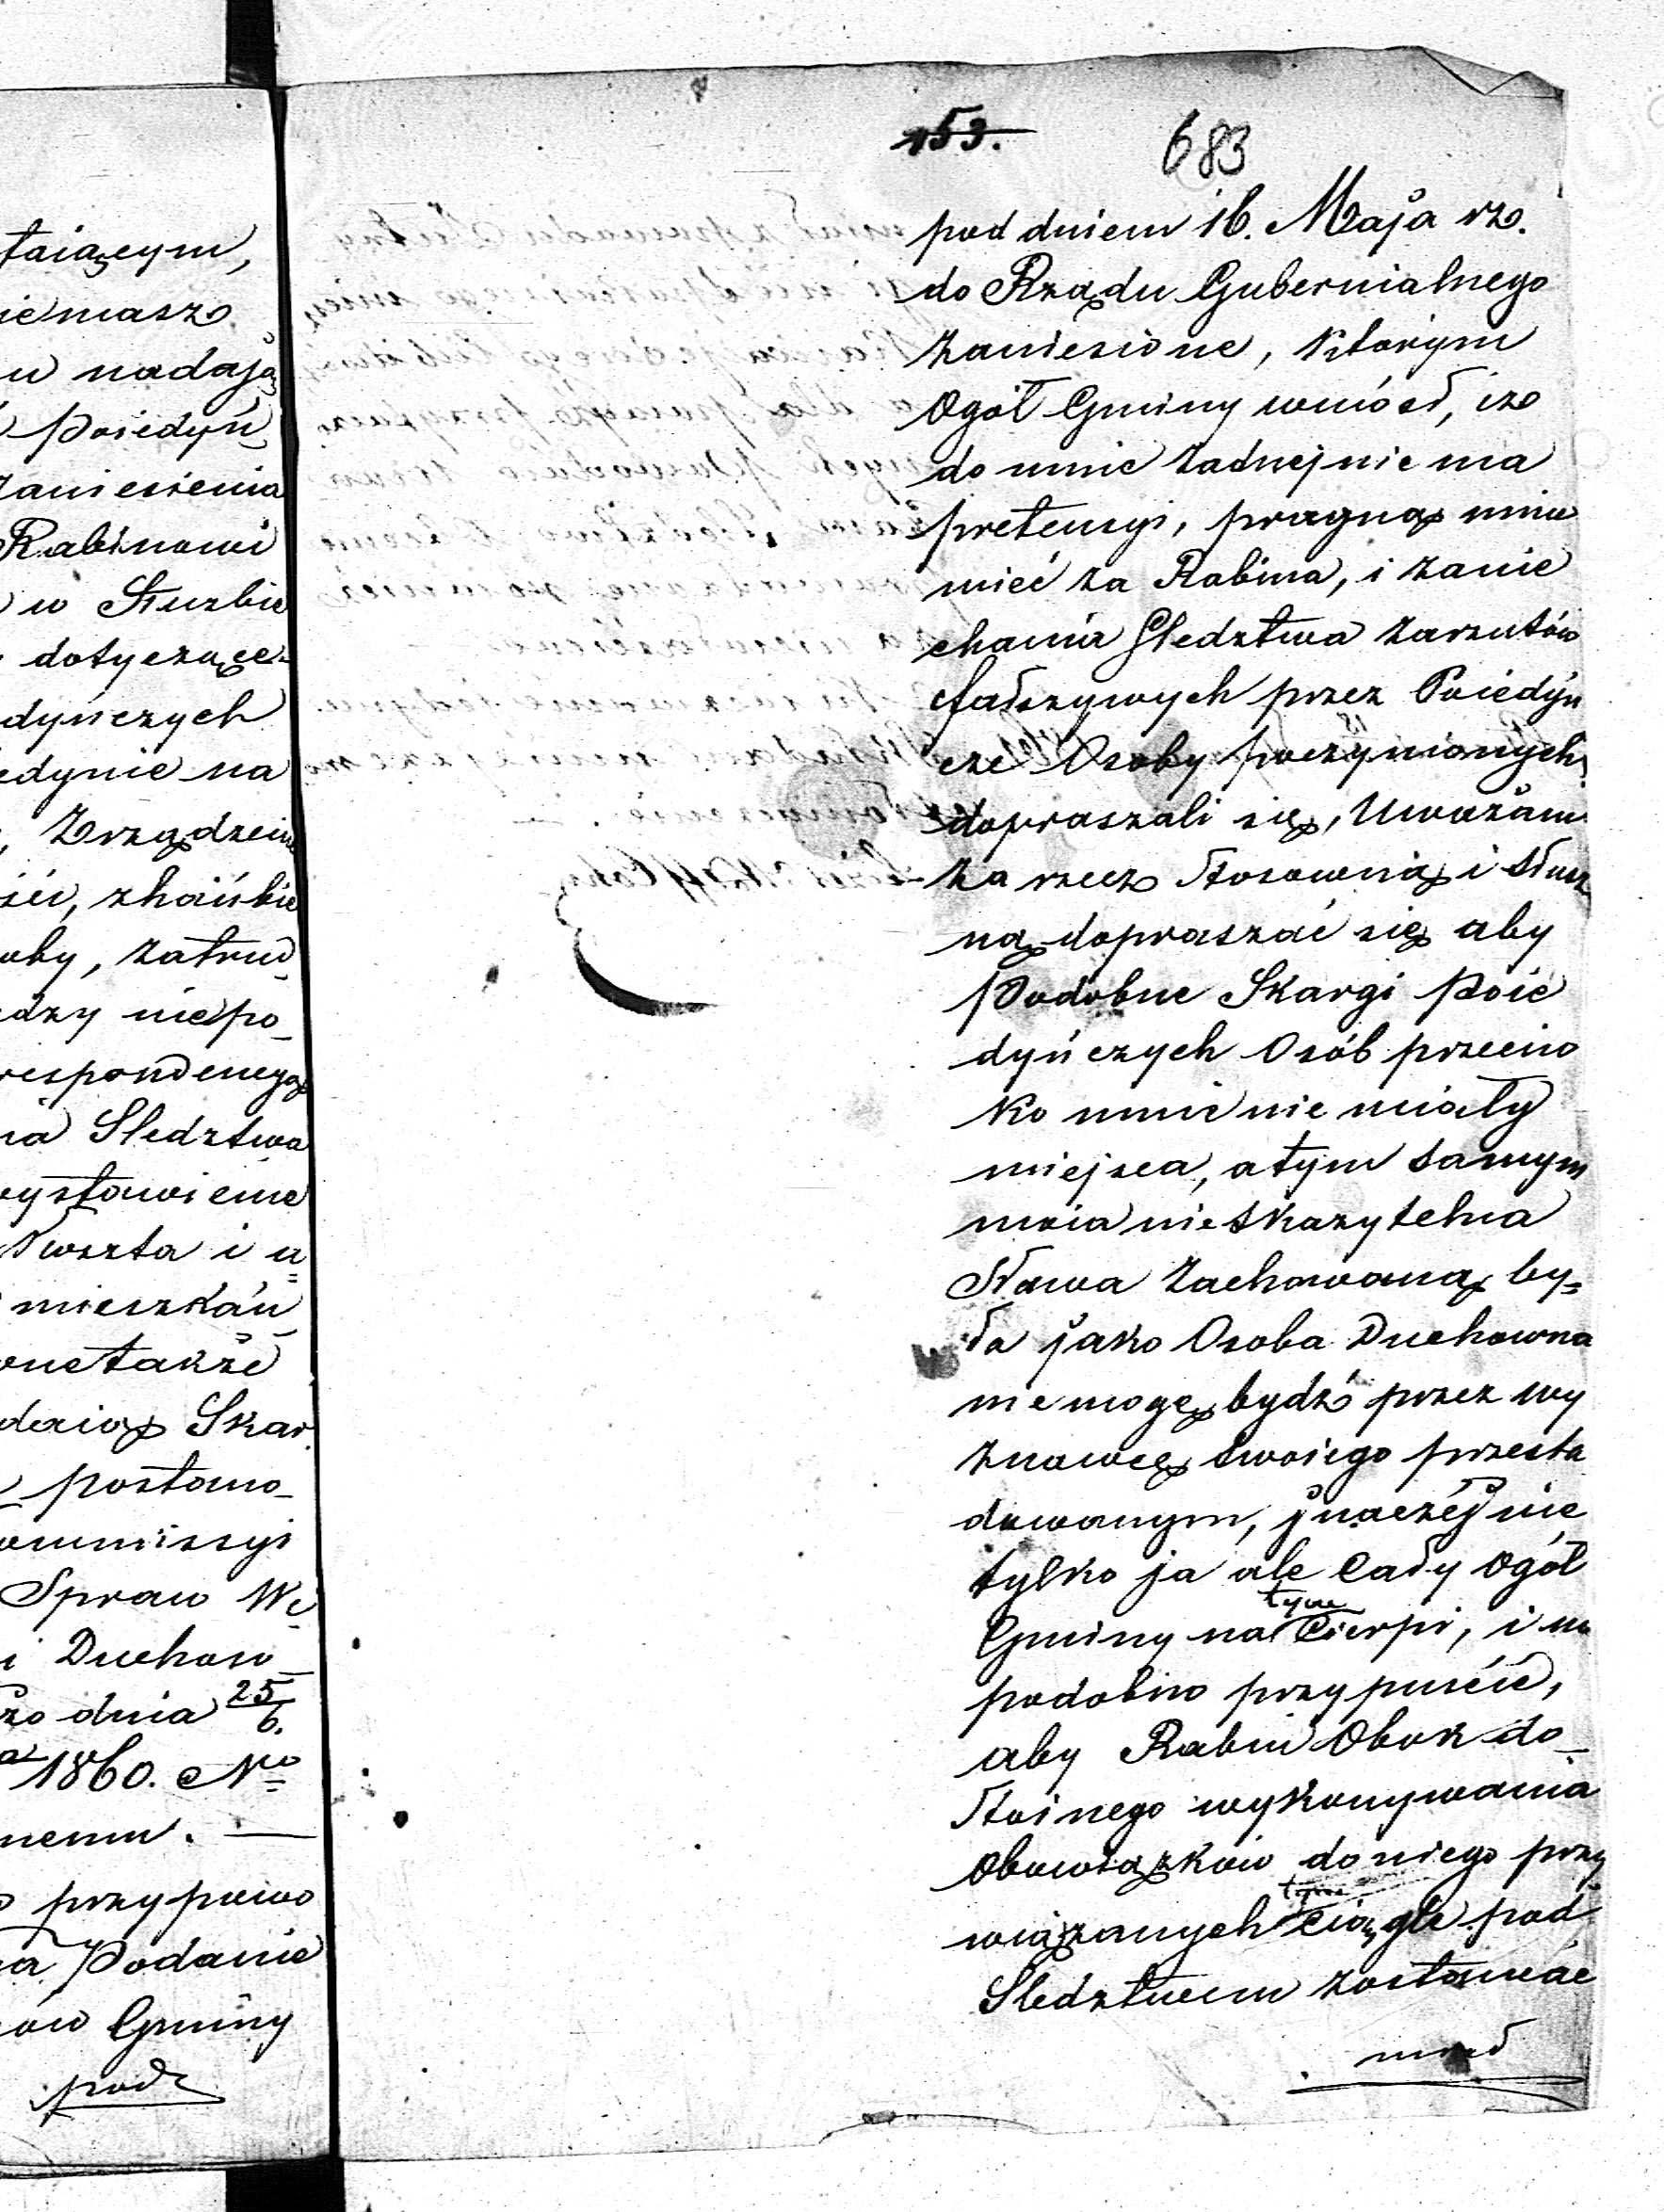 taiącym,
niemasz
u nadają
Poiedyń
zaniesienia
Rabinowi
w Służbie
dotyczące-
dyńczych
edynie na
, Zrządzenia
ści, zhańbie
oby, zatrud-
dzy niepo-
respondencyą
ia Sledztwa
wystawienie
Kwszta i u=
mieszkań
one także
daią Skar
postano-
ommissyi
Spraw We-
i Duchow-
zo dnia 25/6.
a 1860. No
nemu. —
przypowo
a Podanie
ow Gminy
pod
153.
683
pod dniem 16. Maja rz.
do Rządu Gubernialnego
zaniesione, którym
Ogół Gminy wniósł, iż
do mnie żadnej nie ma
pretensyi, pragną mnie
mieć za Rabina, i zanie
chania Sledztwa zarzutów
fałszywych przez Poiedyń
cze Osoby poczynionych,
dopraszali się, Uważam
za rzecz stosowną i słusz
ną dopraszać się aby
Podobne Skargi Poie
dyńczych Osób przeciw
ko mnie nie miały
miejsca, a tym samym
moia nieskazytelna
Sława zachowaną by=
ła jako Osoba Duchowna
nie mogę bydź przez wy
znawcę swoiego prześla
dowanym, jnaczéj nie
tylko ja ale Cały Ogół
Gminy na tym Cierpi, i nie
podobno przypuścić,
aby Rabin Obok do-
stoinego wykonywania
Obowiązków do niego przy
wiązanych ciągle pod
Sledztwem zostawać
miał